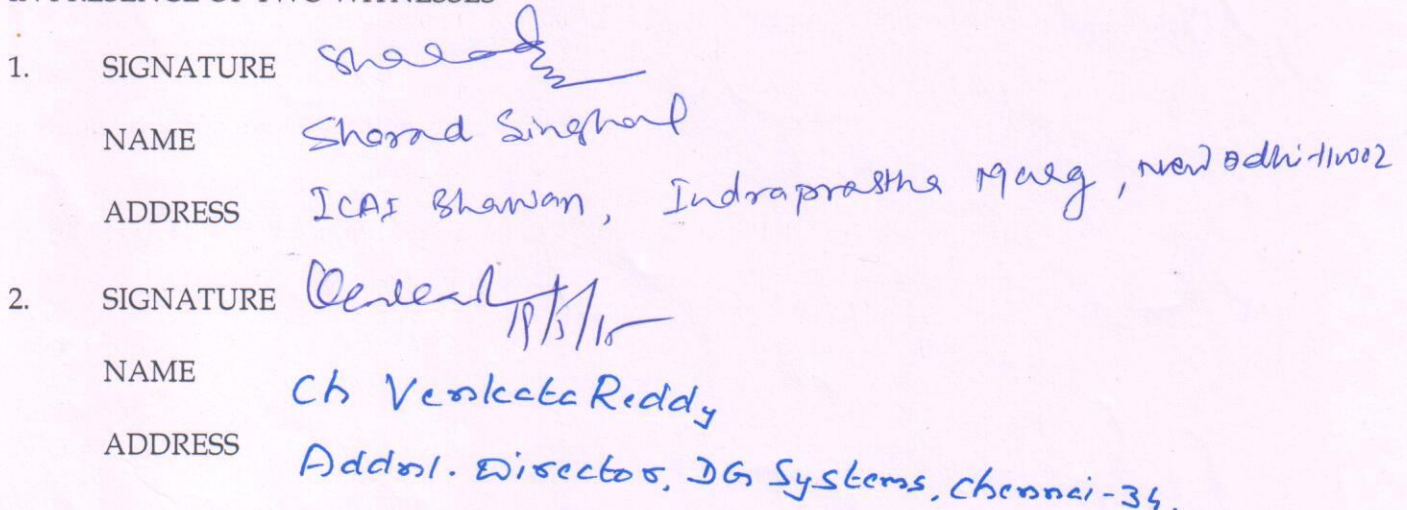 IN PRESENCE OF TWO WITNESSES
1. SIGNATURE Sharad
NAME Sharad Singhal
ADDRESS ICAI Bhawan, Indraprastha Marg, New Delhi-110002
2. SIGNATURE
NAME Ch Venkata Reddy
ADDRESS Addnl. Director, DG Systems, Chennai-34.